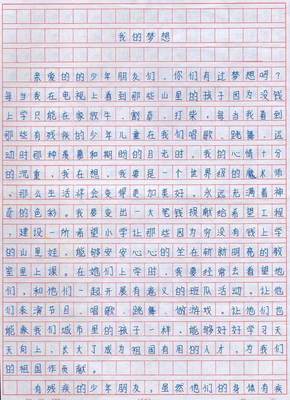 我的梦想
亲爱的的少年朋友们，你们有过梦想吗？
每当我在电视上看到那些山里的孩子因为没钱
上学只能在家放牛、割草、打柴，每当我看到
那些有残疾的少年儿童在我们唱歌、跳舞、运
动时那种羡慕和期盼的目光时，我的心情十分
的沉重，我在想，我要是一个世界级的魔术师，
那么生活将会变得更加美好，永远充满着神
奇的色彩。我要变出一大笔钱捐献给希望工程
，建设一所希望小学让那些因为穷没有钱上学
的山里娃，能够安安心心的坐在崭新明亮的教
室里上课。在她们上学时，我要经常去看望他
们，和他们一起开展有意义的班队活动。让他
们表演节目、唱歌、跳舞、做游戏。让他们也
能象我们城市里的孩子一样，能够好好学习天
天向上，长大了成为祖国有用的人才，为我们
的祖国作贡献。
有残疾的少年朋友，虽然他们的身体有疾